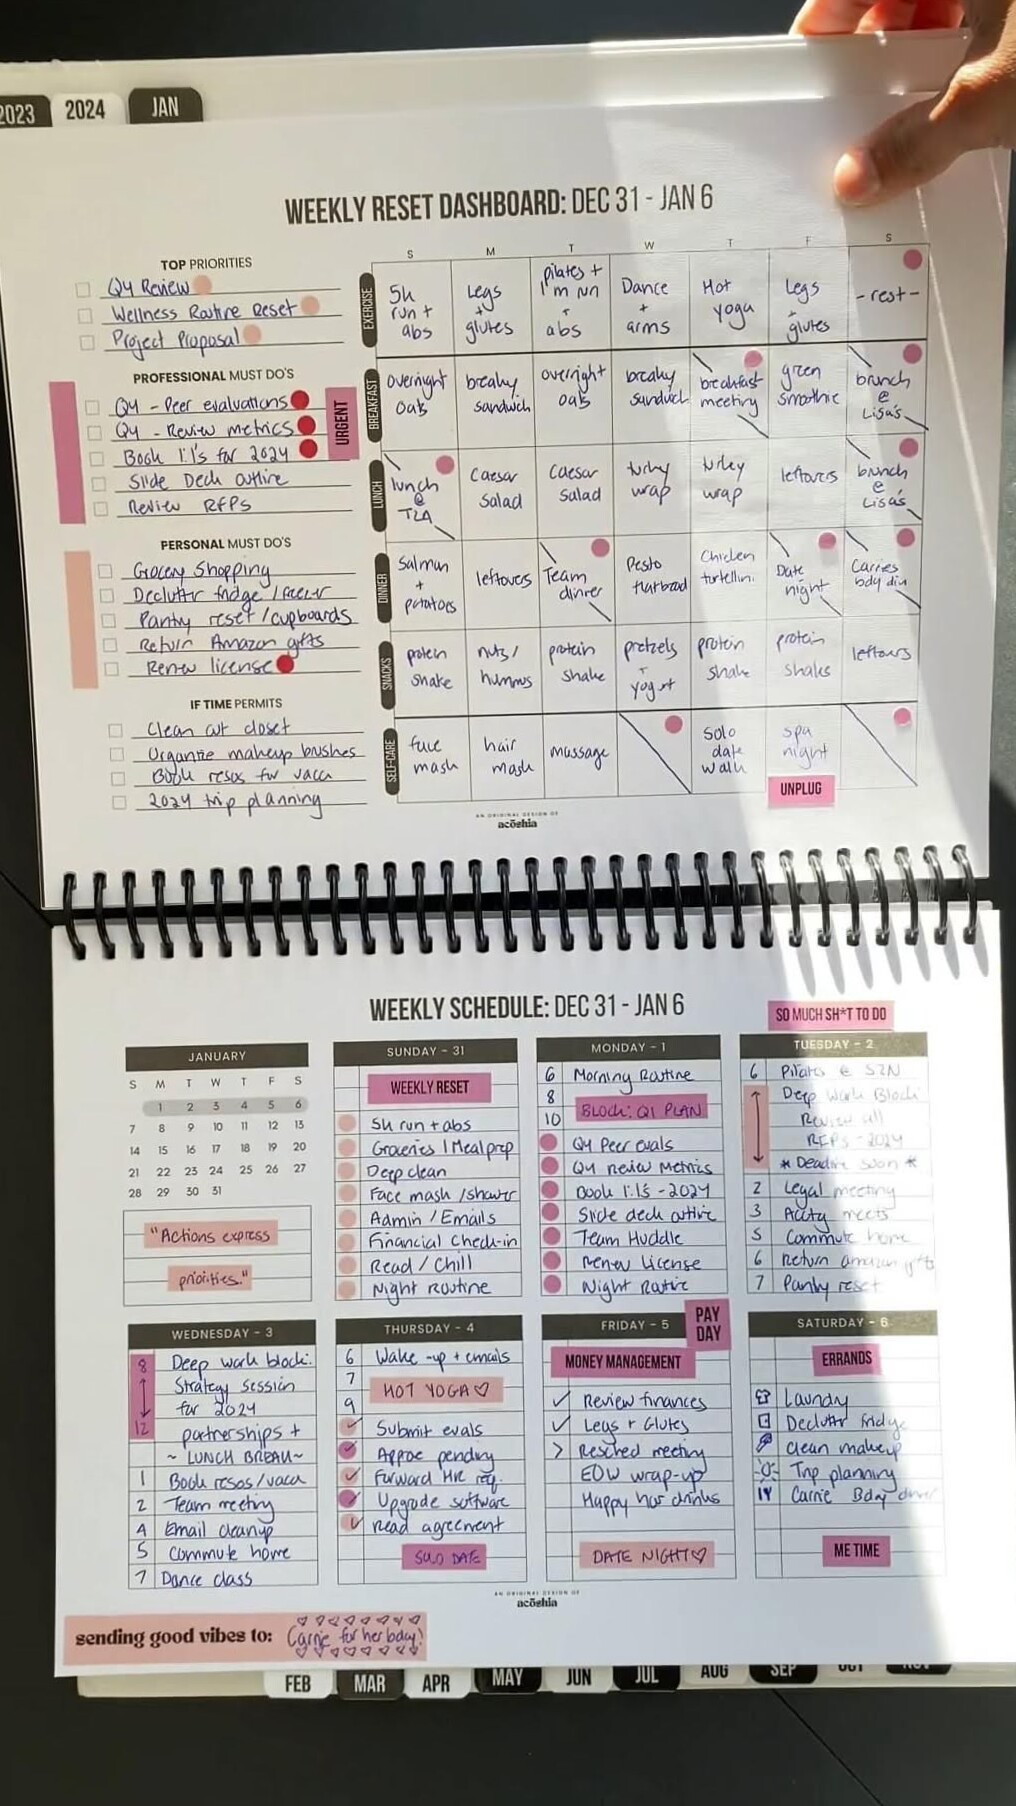 2023
2024
JAN
WEEKLY RESET DASHBOARD: DEC 31 - JAN 6
TOP PRIORITIES
Q4 Review
Wellness Routine Reset
Project Proposal
PROFESSIONAL MUST DO'S
Q4 - Peer evaluations
Q4 - Review metrics
Book 1:1's for 2024
Slide Deck outline
Review RFPS
URGENT
PERSONAL MUST DO'S
Grocery Shopping
Declutter fridge / freezer
Pantry reset / cupboards
Return Amazon gifts
Renew license
IF TIME PERMITS
Clean out closet
Organize makeup brushes
Book resos for vaca
2024 trip planning
S M T W T F S
EXERCISE
5k run + abs
Legs + glutes
pilates + 1 m run + abs
Dance + arms
Hot yoga
Legs + glutes
- rest -
BREAKFAST
overnight oats
breaky sandwich
overnight oats
breaky sandwich
breakfast meeting
green smoothie
brunch @ Lisa's
LUNCH
lunch @ TLA
Caesar salad
Caesar salad
turkey wrap
turkey wrap
leftovers
brunch @ Lisa's
DINNER
Salmon + potatoes
leftovers
Team dinner
Pesto flatbread
Chicken tortellini
Date night
Carries bday din
SNACKS
protein shake
nuts / hummus
protein shake
pretzels + yogurt
protein shake
protein shake
leftovers
SELF-CARE
face mask
hair mask
massage
solo date walk
spa night
UNPLUG
AN ORIGINAL DESIGN OF
acōshia
WEEKLY SCHEDULE: DEC 31 - JAN 6
SO MUCH SH*T TO DO
JANUARY
S M T W T F S
1 2 3 4 5 6
7 8 9 10 11 12 13
14 15 16 17 18 19 20
21 22 23 24 25 26 27
28 29 30 31
"Actions express
priorities."
SUNDAY - 31
WEEKLY RESET
5k run + abs
Groceries / Mealprep
Deep clean
Face mask / shower
Admin / Emails
Financial Check-in
Read / Chill
Night Routine
MONDAY - 1
6 Morning Routine
8
10 BLOCK: Q1 PLAN
Q4 Peer evals
Q4 Review Metrics
Book 1:1's - 2024
Slide deck outline
Team Huddle
Renew License
Night Routine
TUESDAY - 2
6 Pilates @
Deep Work Block:
Review all
RFPS - 2024
* Deadline soon *
2 Legal meeting
3 meets
5 Commute home
6 Return amazon gifts
7 Pantry reset
WEDNESDAY - 3
8 Deep work block:
Strategy session
for 2024
12 partnerships +
~ LUNCH BREAK ~
1 Book resos / vaca
2 Team meeting
4 Email cleanup
5 Commute home
7 Dance class
THURSDAY - 4
6 Wake-up + emails
7
HOT YOGA ♡
9
Submit evals
Approve pending
Forward HR req.
Upgrade software
Read agreement
SOLO DATE
FRIDAY - 5
PAY DAY
MONEY MANAGEMENT
✓ Review finances
✓ Legs + Glutes
> Resched meeting
EOW wrap-up
Happy hour drinks
DATE NIGHT ♡
SATURDAY - 6
ERRANDS
Laundry
Declutter fridge
clean makeup
Trip planning
Carrie Bday dinner
ME TIME
AN ORIGINAL DESIGN OF
acōshia
sending good vibes to: Carrie for her bday!
FEB MAR APR MAY JUN JUL AUG SEP OCT NOV